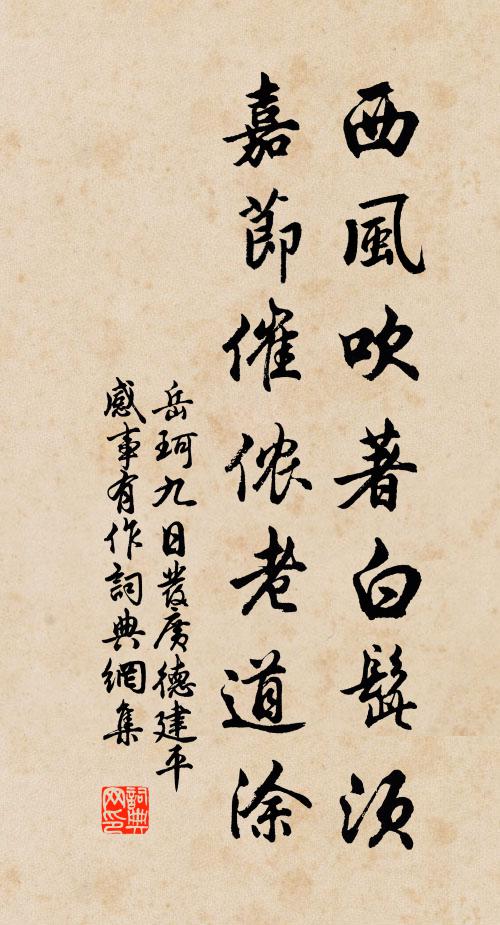 西風吹著白髭須
嘉節催儂老道涂
岳珂九日發廣德建平
感事有作詞典網集
詞典网印